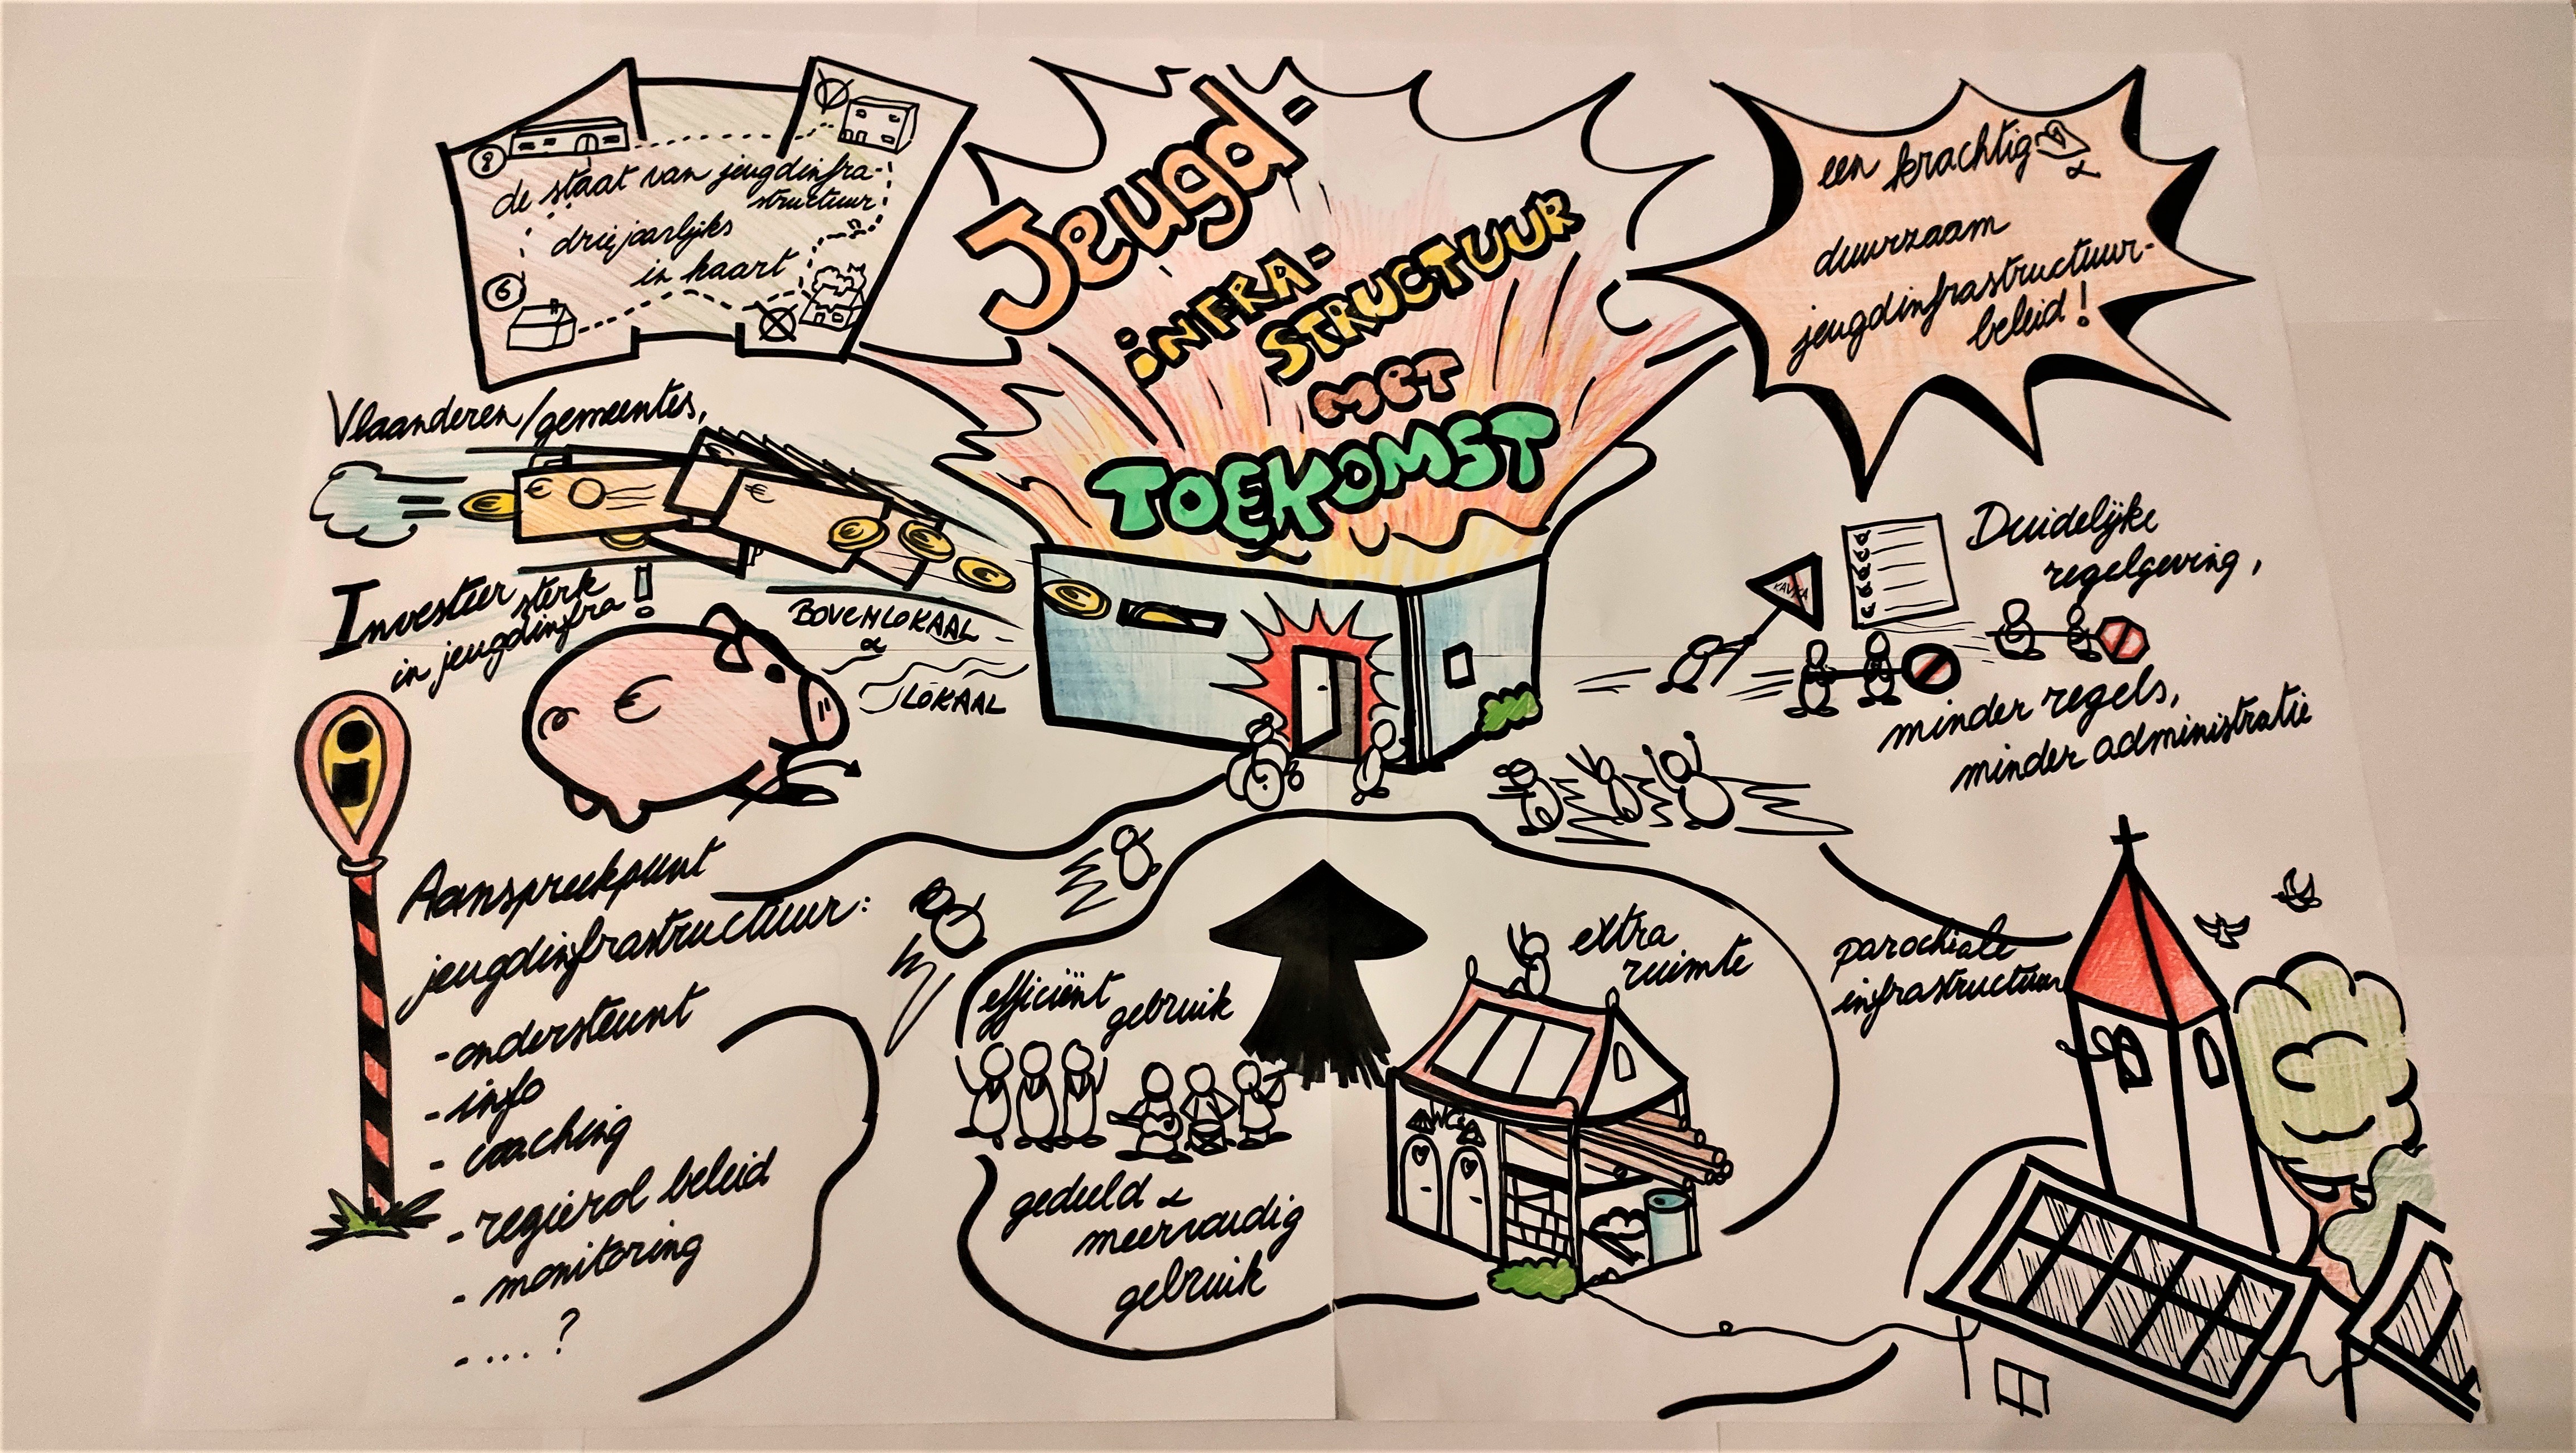 de staat van jeugdinfra-
structuur
driejaarlijks
in kaart
6
Jeugd-
INFRA-
STRUCTUUR
MET
TOEKOMST
een krachtig
&
duurzaam
jeugdinfrastructuur-
beleid!
Vlaanderen/gemeentes,
€
€
€
€
€
€
€
Investeer sterk
in jeugdinfra!
€
BOVENLOKAAL
&
LOKAAL
Duidelijke
regelgeving,
KAVKA
minder regels,
minder administratie
i
Aanspreekpunt
jeugdinfrastructuur:
- ondersteunt
- info
- coaching
- regierol beleid
- monitoring
- .... ?
efficiënt
gebruik
geduld &
meervoudig
gebruik
extra
ruimte
WC's
parochiale
infrastructuur